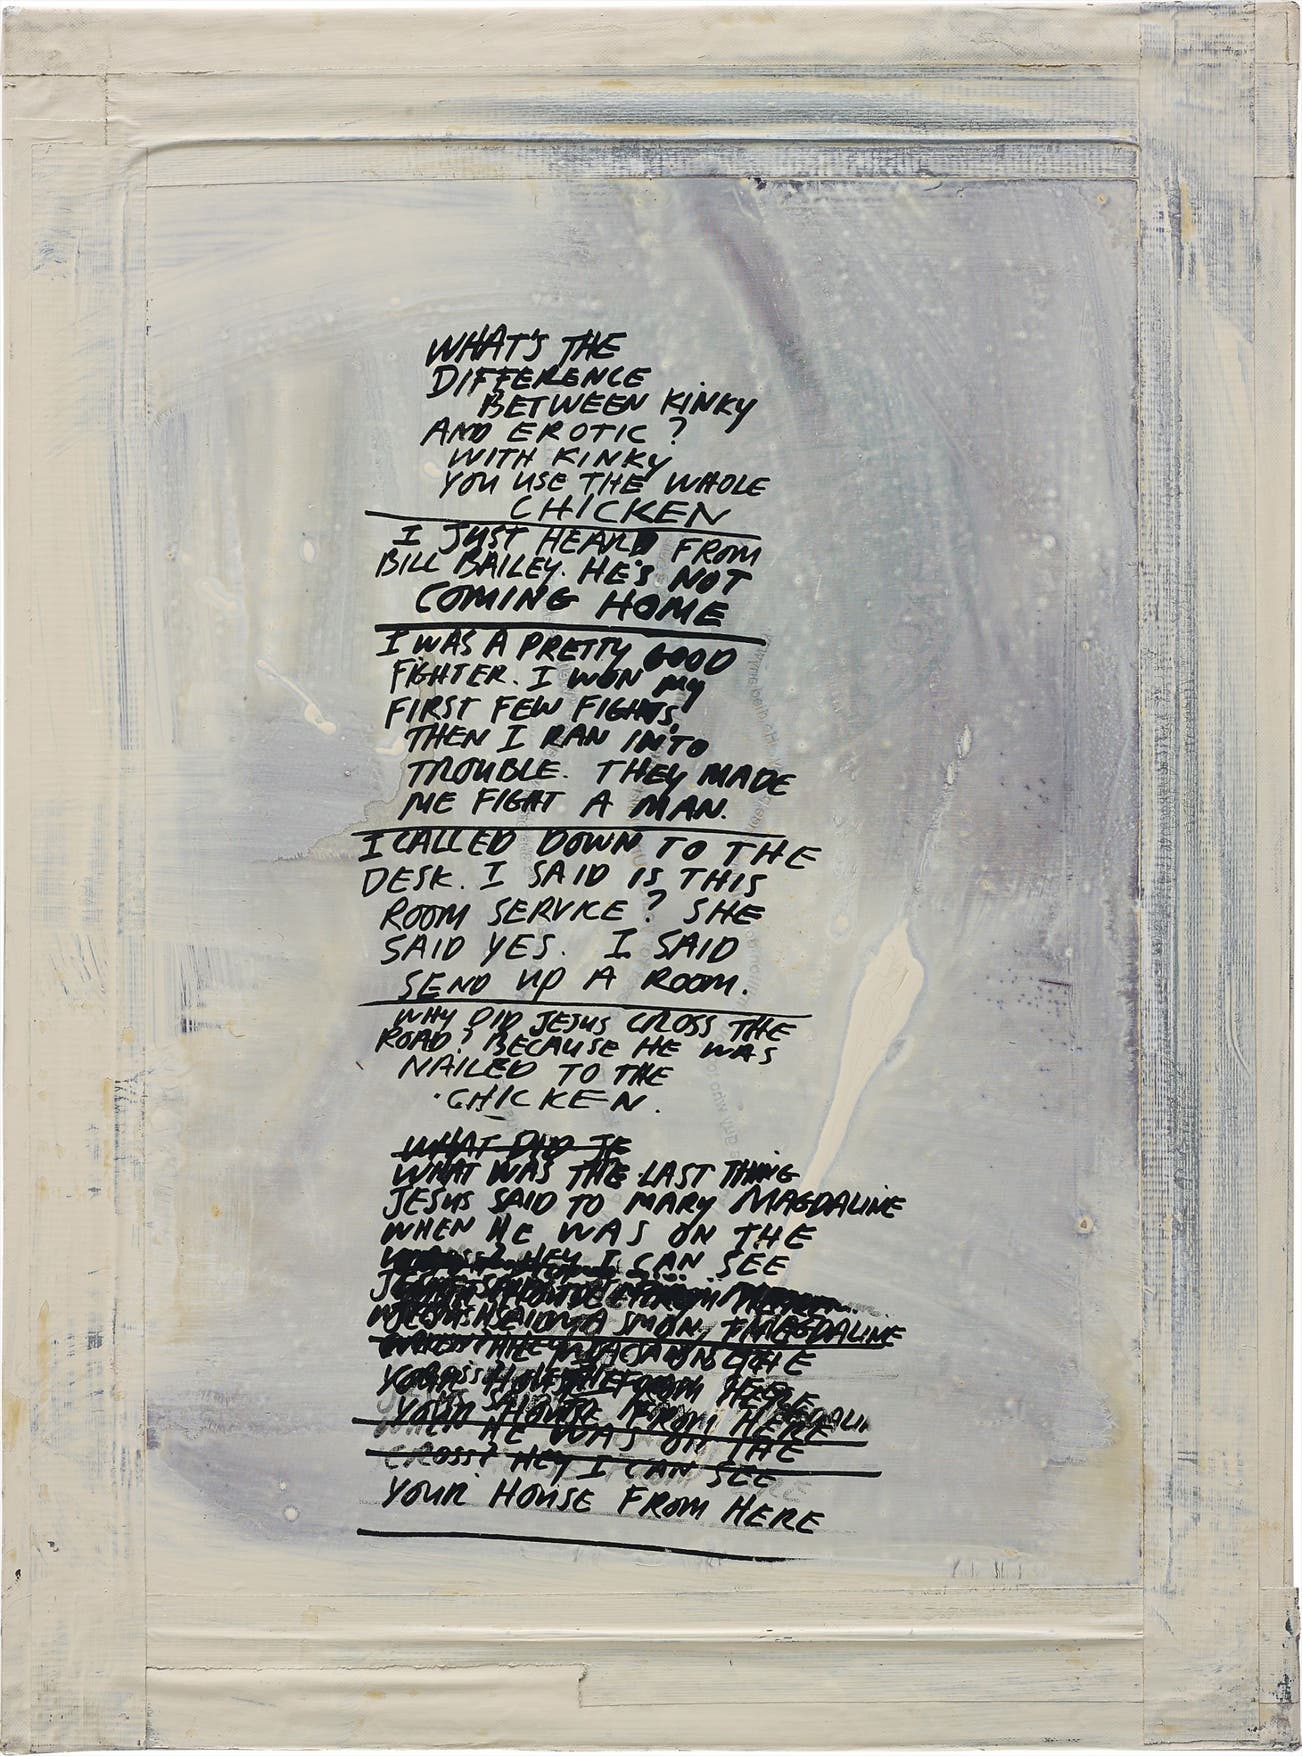 WHAT'S THE
DIFFERENCE
BETWEEN KINKY
AND EROTIC?
WITH KINKY
YOU USE THE WHOLE
CHICKEN
I JUST HEARD FROM
BILL BAILEY. HE'S NOT
COMING HOME
I WAS A PRETTY GOOD
FIGHTER. I WON MY
FIRST FEW FIGHTS,
THEN I RAN INTO
TROUBLE. THEY MADE
ME FIGHT A MAN.
I CALLED DOWN TO THE
DESK. I SAID IS THIS
ROOM SERVICE? SHE
SAID YES. I SAID
SEND UP A ROOM.
WHY DID JESUS CROSS THE
ROAD? BECAUSE HE WAS
NAILED TO THE
CHICKEN.
WHAT DID JE
WHAT WAS THE LAST THING
JESUS SAID TO MARY MAGDALINE
WHEN HE WAS ON THE
HEY I CAN SEE
MAGDALINE
YOUR HOUSE FROM HERE
WHEN HE WAS ON THE
CROSS? HEY I CAN SEE
YOUR HOUSE FROM HERE